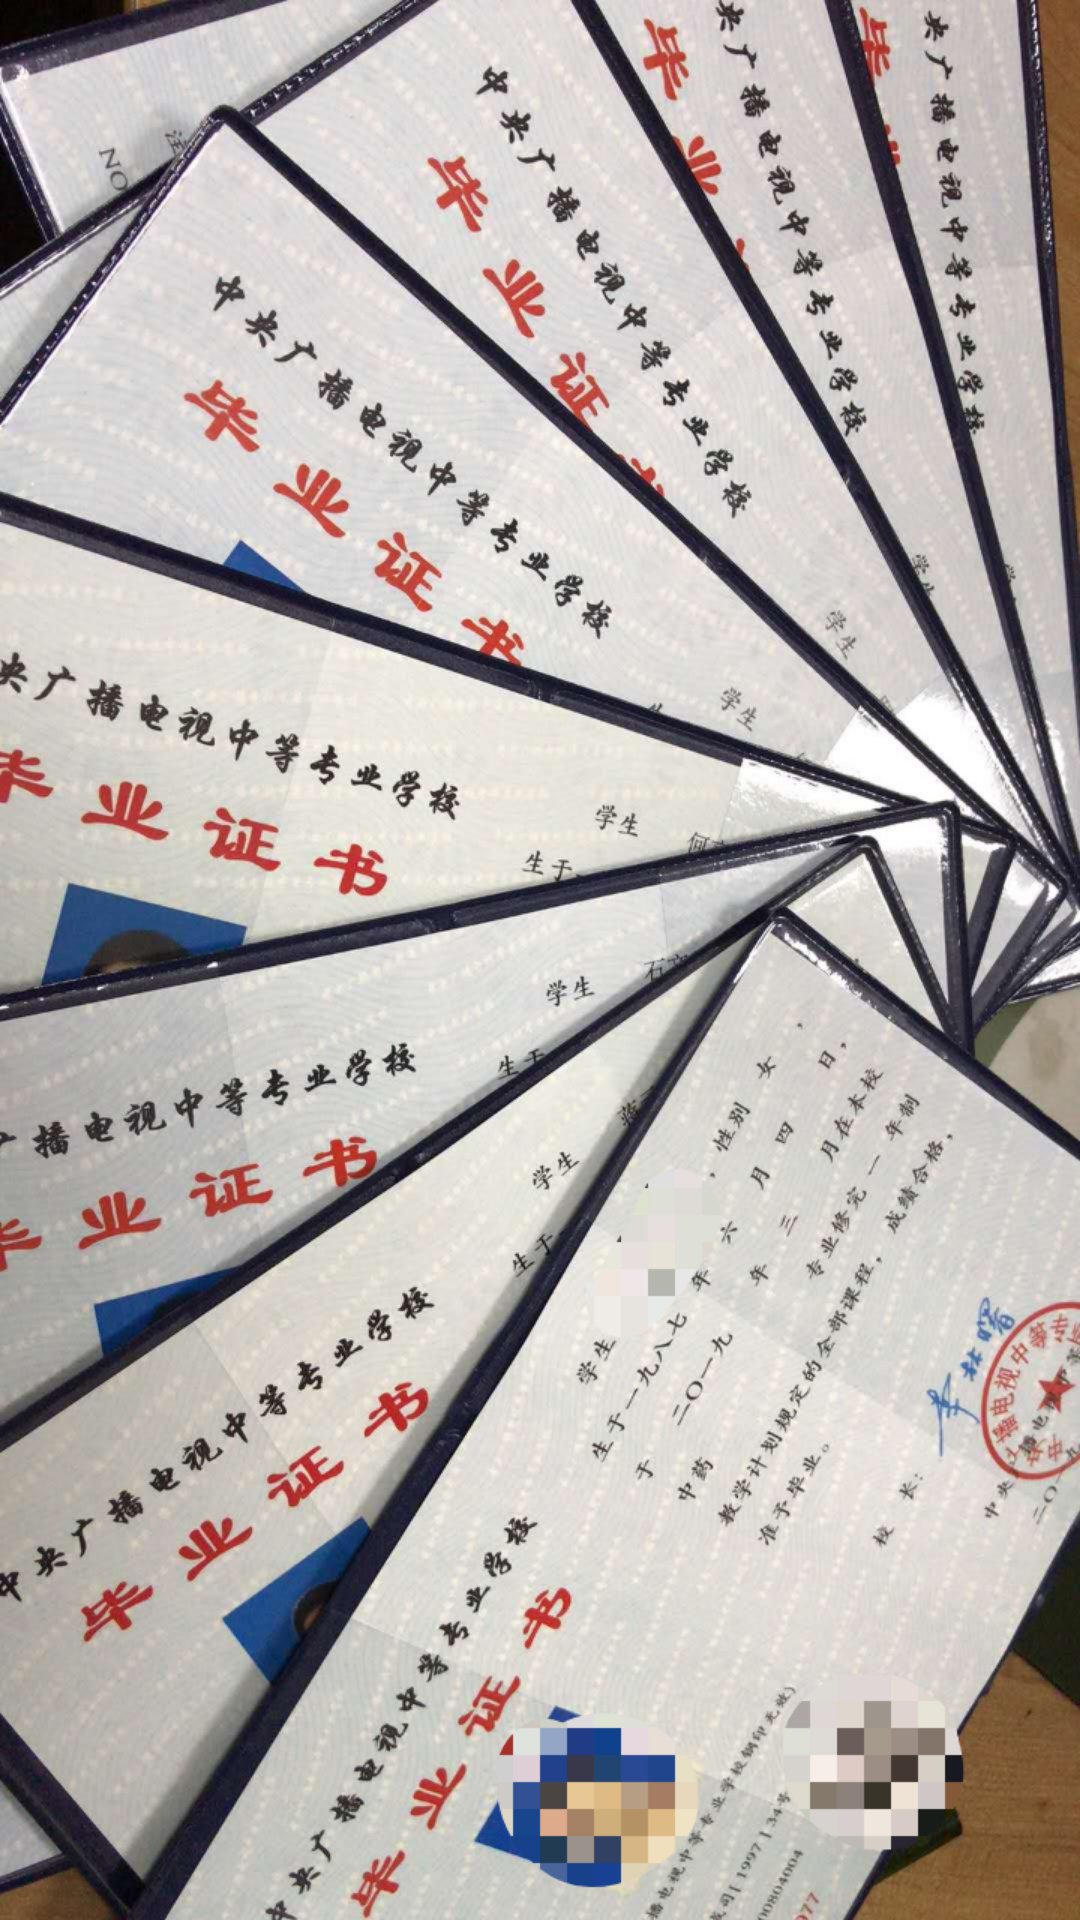 NO
中央广播电视中等专业学校
毕业证书
学生
中央广播电视中等专业学校
毕业证
学生
央广播电视中等专业学校
毕业
学生
央广播电视中等专业学校
毕业
央广播电视中等专业学校
毕业证书
学生
生于
广播电视中等专业学校
毕业证书
学生 石
生于
中央广播电视中等专业学校
毕业证书
学生
生于
中央广播电视中等专业学校
毕业证书
学生 ，性别 女 ，
生于一九八七 年 六 月 四 日，
于 二〇一九 年 三 月在本校
中药 专业修完 一 年制
教学计划规定的全部课程，成绩合格，
准予毕业。
校 长：
中央
二〇一九
播电视中等专业学校钢印无效)
成司[1997]34号
00804004
077